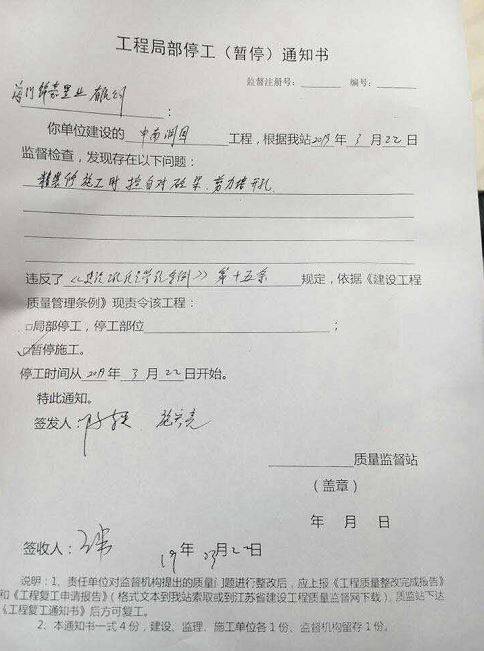 工程局部停工（暂停）通知书
监督注册号：　　编号：
海门锦嘉置业有限公司：
你单位建设的 中南润园 工程，根据我站2019年3月22日
监督检查，发现存在以下问题：
精装修施工时擅自对砼梁、剪力墙开孔
违反了《建设工程质量管理条例》第十五条 规定，依据《建设工程
质量管理条例》现责令该工程：
□局部停工，停工部位　　；
☑暂停施工。
停工时间从2019年3月22日开始。
特此通知。
签发人：
质量监督站
（盖章）
年　月　日
签收人：
19年3月22日
说明：1、责任单位对监督机构提出的质量问题进行整改后，应上报《工程质量整改完成报告》
和《工程复工申请报告》（格式文本到我站索取或到江苏省建设工程质量监督网下载）。质监站下达
《工程复工通知书》后方可复工。
2、本通知书一式4份，建设、监理、施工单位各1份、监督机构留存1份。